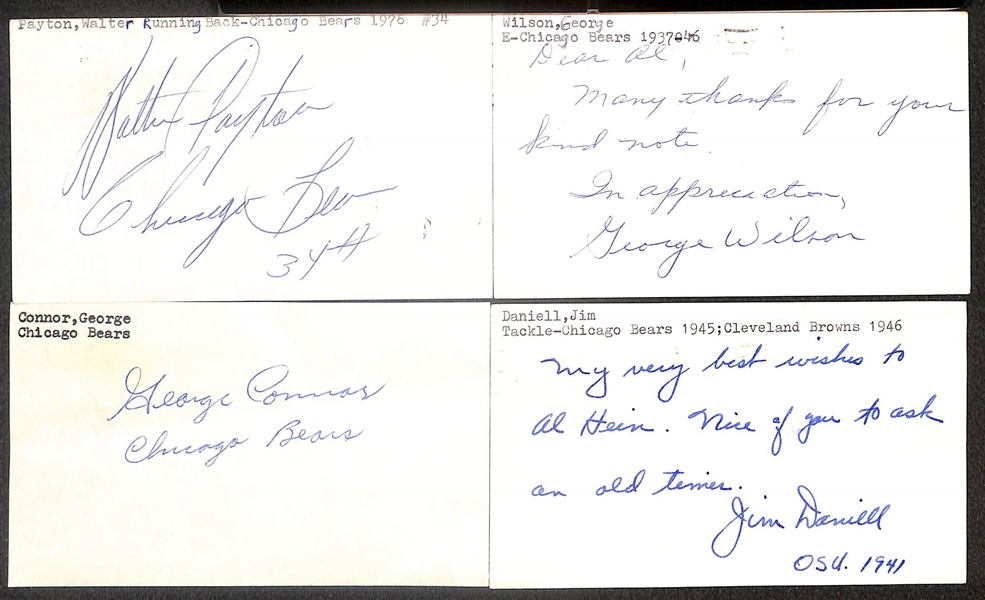 Payton,Walter Running Back-Chicago Bears 1976 #34
Walter Payton
Chicago Bears
34
Wilson,George
E-Chicago Bears 1937-46
Dear Al,
Many thanks for your
kind note.
In appreciation,
George Wilson
Connor,George
Chicago Bears
George Connor
Chicago Bears
Daniell,Jim
Tackle-Chicago Bears 1945;Cleveland Browns 1946
My very best wishes to
Al Hein. Nice of you to ask
an old timer.
Jim Daniell
OSU. 1941